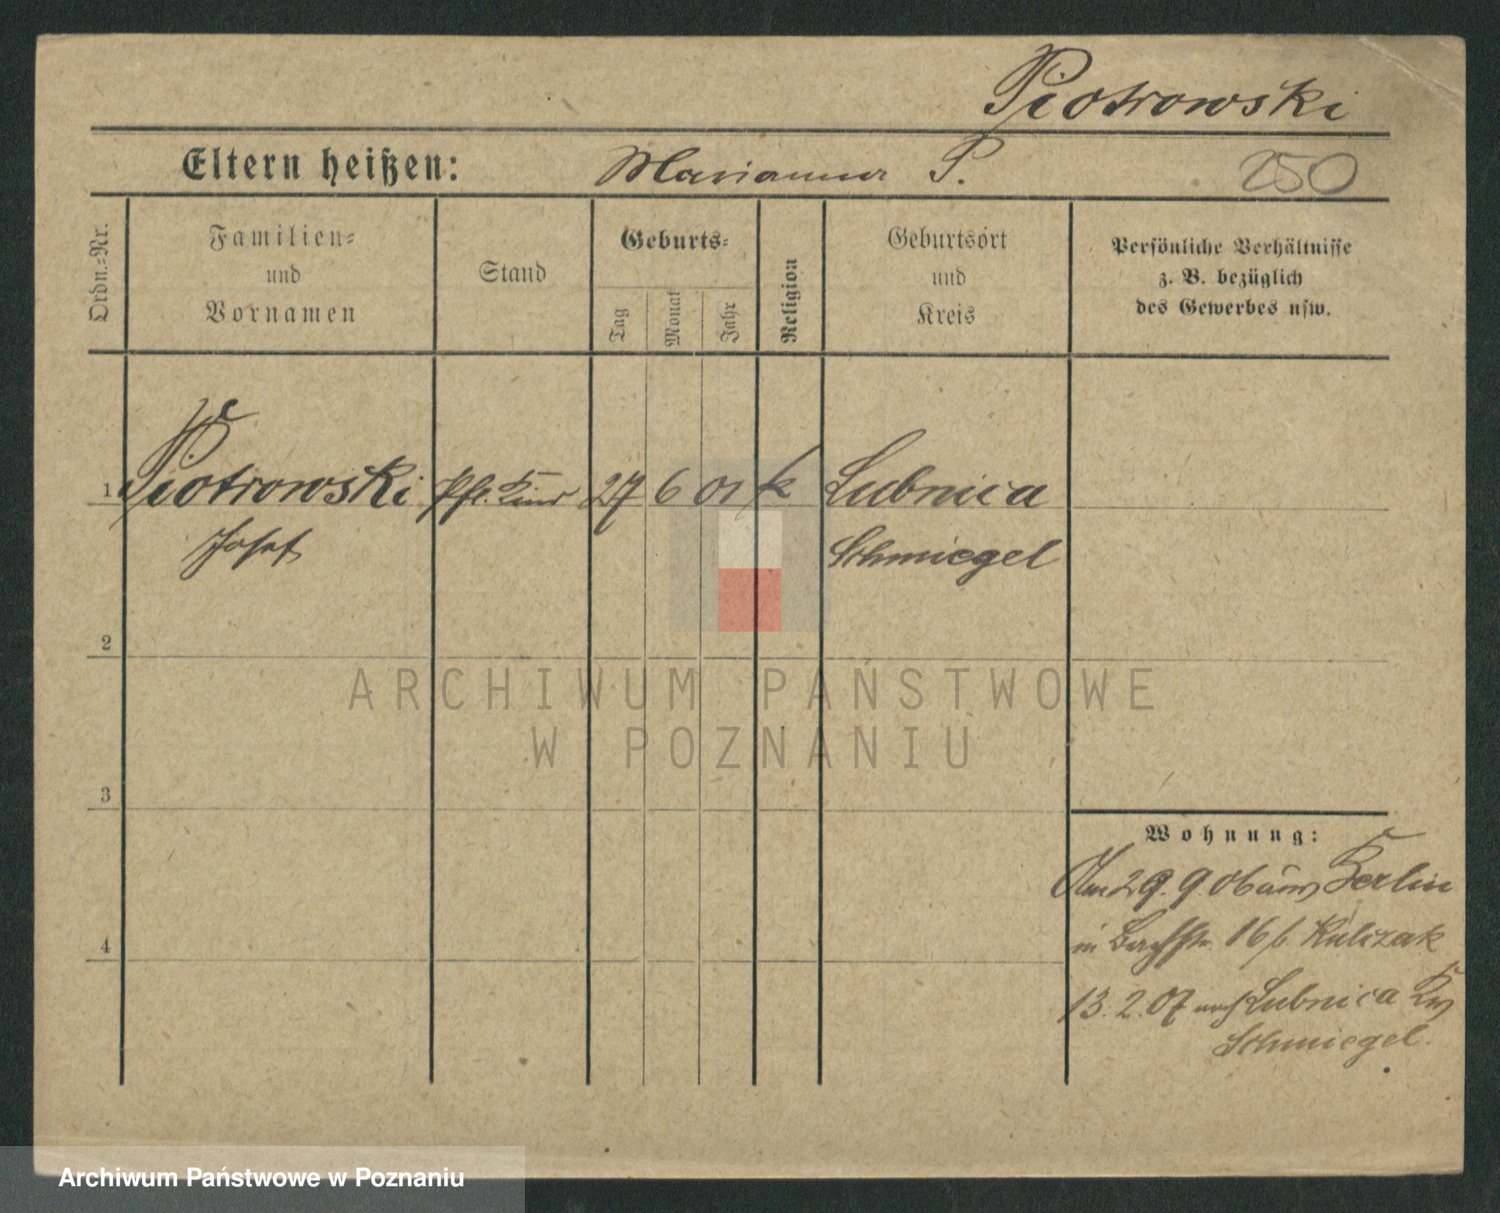 Piotrowski
Eltern heißen: Marianna P. 250
Ordn.-Nr.
Familien-
und
Vornamen
Stand
Geburts-
Tag
Monat
Jahr
Religion
Geburtsort
und
Kreis
Persönliche Verhältnisse
z. B. bezüglich
des Gewerbes usw.
1 Piotrowski Pfl. Kind 27 6 01 k Lubnica
Josef Schmiegel
2
ARCHIWUM PAŃSTWOWE
W POZNANIU
3
Wohnung:
Am 29. 9. 06 aus Berlin
in Bachstr. 16 b. Kulczak
4
13. 2. 07 nach Lubnica Krs
Schmiegel.
Archiwum Państwowe w Poznaniu